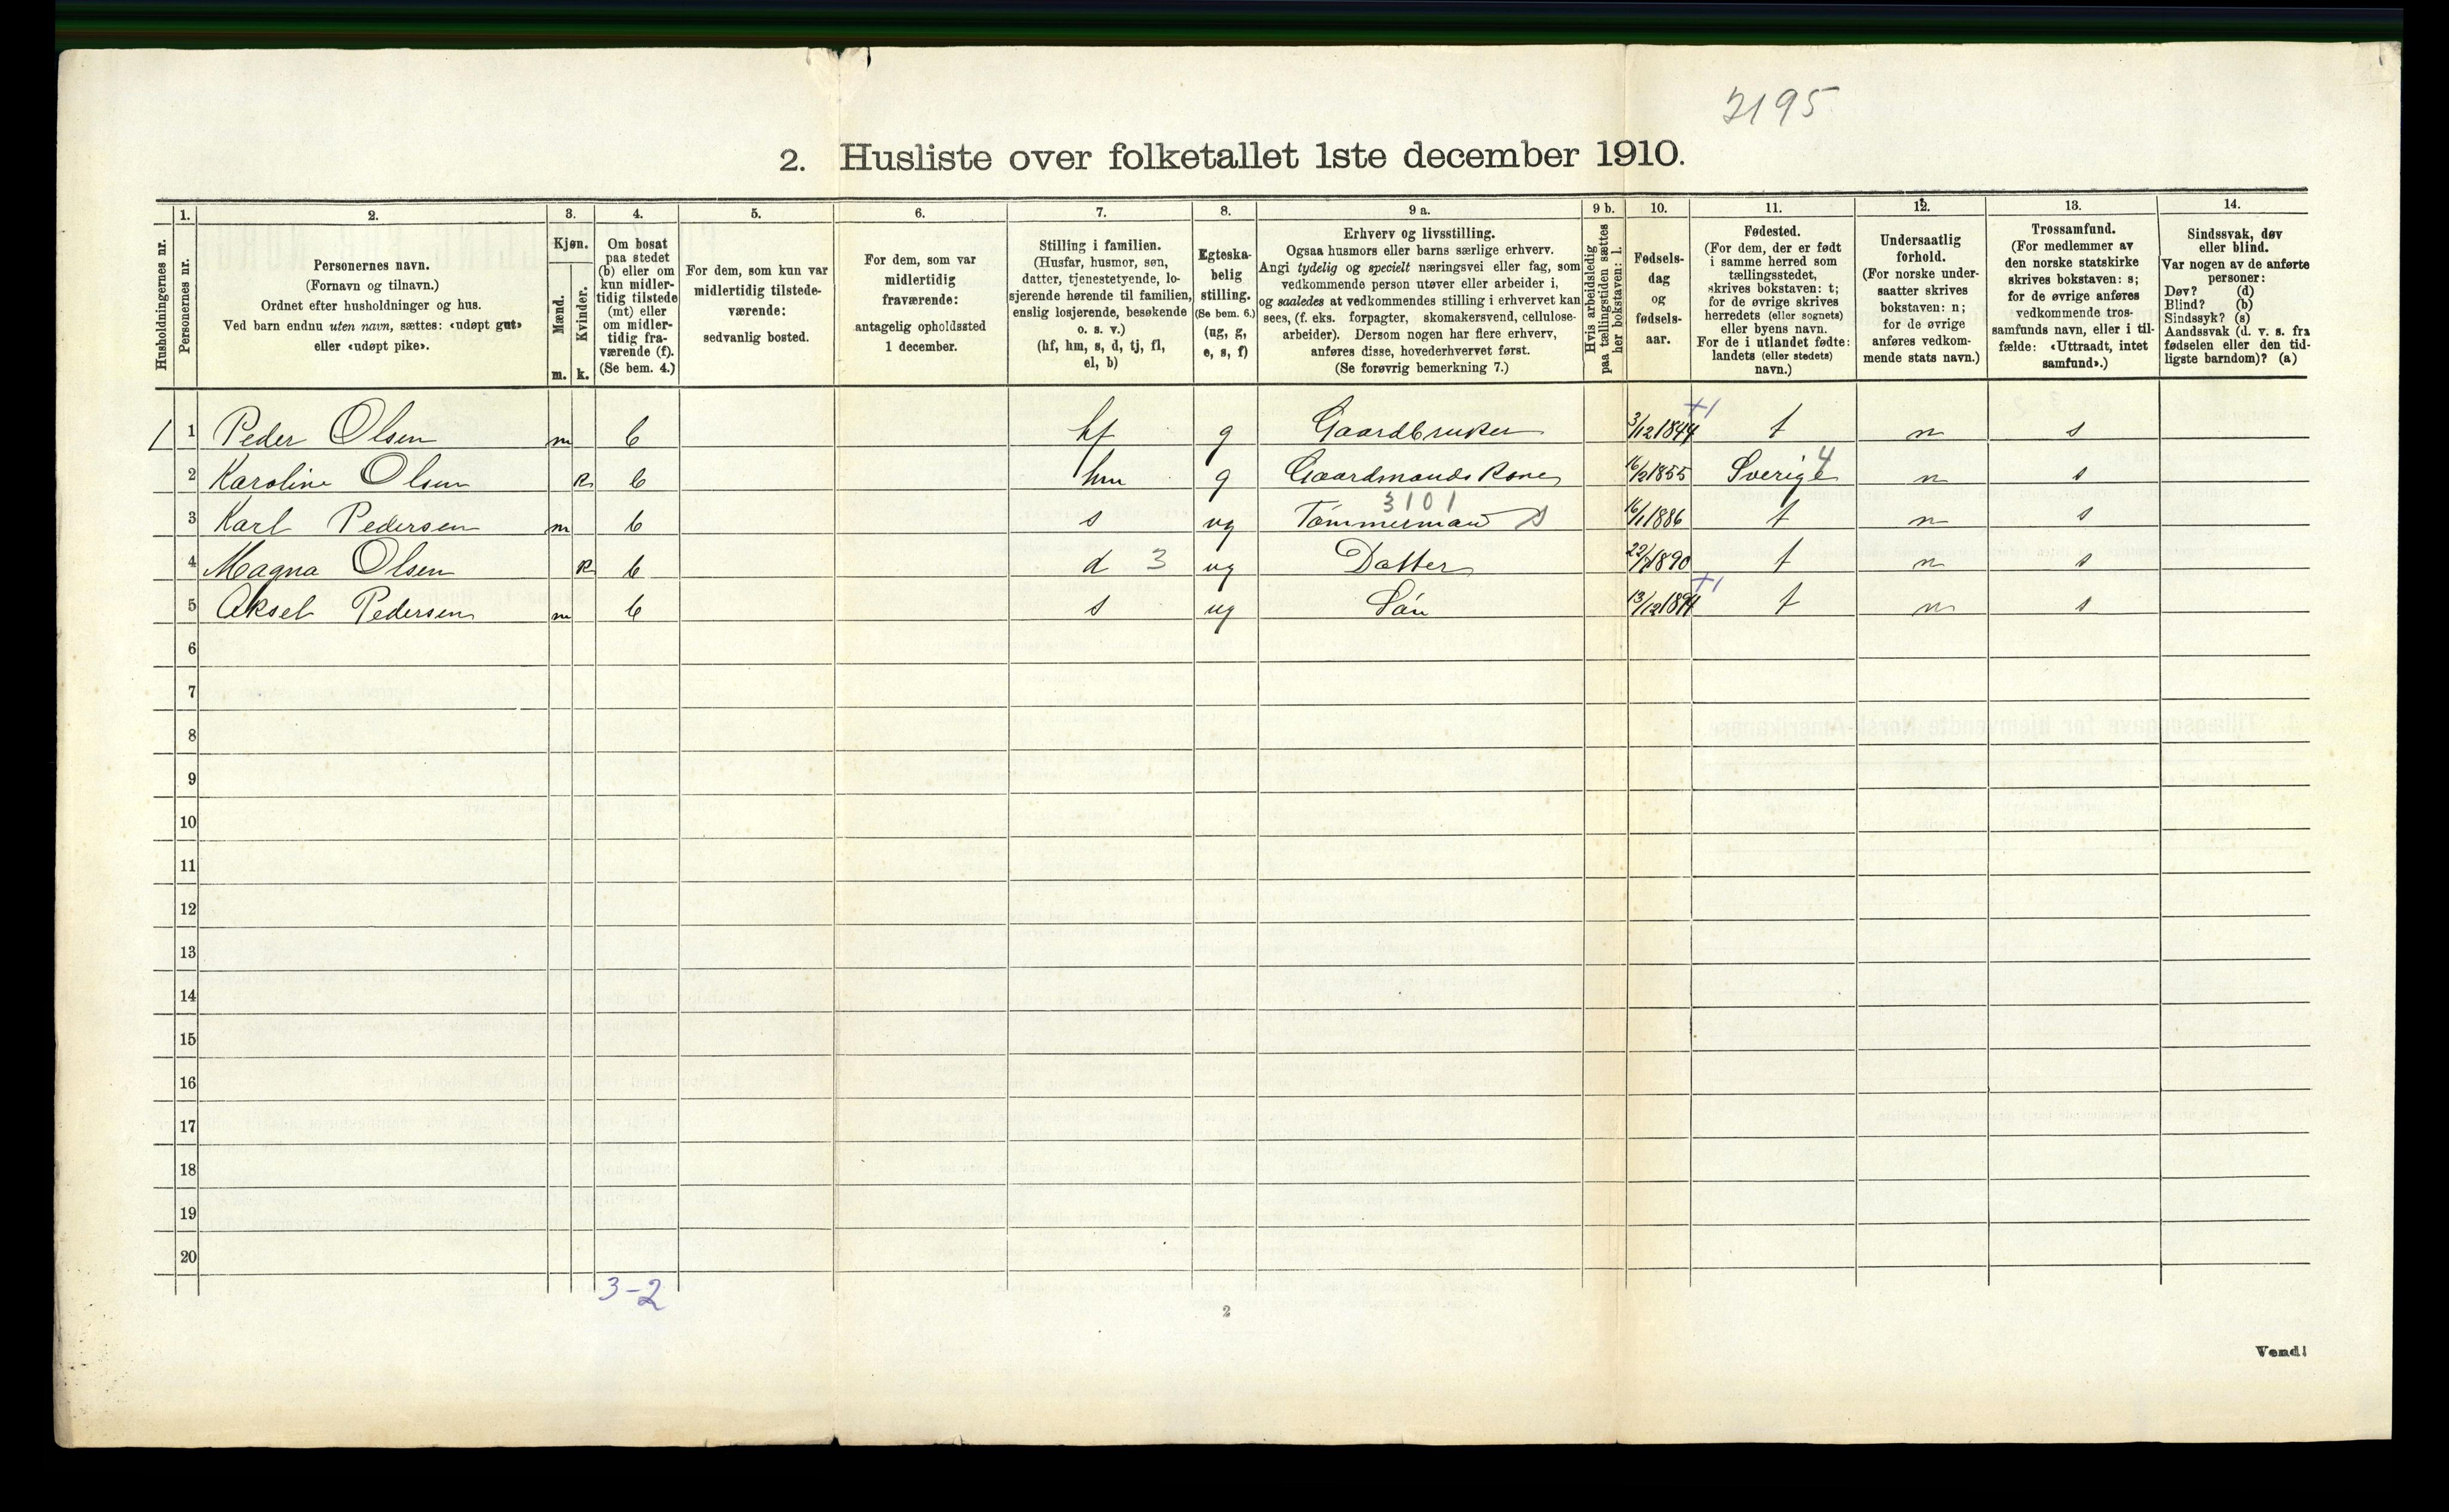 2195
2. Husliste over folketallet 1ste december 1910.
Husholdningernes nr.
1.
Personernes nr.
2.
Personernes navn.
(Fornavn og tilnavn.)
Ordnet efter husholdninger og hus.
Ved barn endnu uten navn, sættes: «udøpt gut»
eller «udøpt pike».
3.
Kjøn.
Mænd.
Kvinder.
m. k.
4.
Om bosat
paa stedet
(b) eller om
kun midler-
tidig tilstede
(mt) eller
om midler-
tidig fra-
værende (f).
(Se bem. 4.)
5.
For dem, som kun var
midlertidig tilstede-
værende:
sedvanlig bosted.
6.
For dem, som var
midlertidig
fraværende:
antagelig opholdssted
1 december.
7.
Stilling i familien.
(Husfar, husmor, søn,
datter, tjenestetyende, lo-
sjerende hørende til familien,
enslig losjerende, besøkende
o. s. v.)
(hf, hm, s, d, tj, fl,
el, b)
8.
Egteska-
belig
stilling.
(Se bem. 6.)
(ug, g,
e, s, f)
9 a.
Erhverv og livsstilling.
Ogsaa husmors eller barns særlige erhverv.
Angi tydelig og specielt næringsvei eller fag, som
vedkommende person utøver eller arbeider i,
og saaledes at vedkommendes stilling i erhvervet kan
sees, (f. eks. forpagter, skomakersvend, cellulose-
arbeider). Dersom nogen har flere erhverv,
anføres disse, hovederhvervet først.
(Se forøvrig bemerkning 7.)
9 b.
Hvis arbeidsledig
paa tællingstiden sættes
her bokstaven: l.
10.
Fødsels-
dag
og
fødsels-
aar.
11.
Fødested.
(For dem, der er født
i samme herred som
tællingsstedet,
skrives bokstaven: t;
for de øvrige skrives
herredets (eller sognets)
eller byens navn.
For de i utlandet fødte:
landets (eller stedets)
navn.)
12.
Undersaatlig
forhold.
(For norske under-
saatter skrives
bokstaven: n;
for de øvrige
anføres vedkom-
mende stats navn.)
13.
Trossamfund.
(For medlemmer av
den norske statskirke
skrives bokstaven: s;
for de øvrige anføres
vedkommende tros-
samfunds navn, eller i til-
fælde: «Uttraadt, intet
samfund».)
14.
Sindssvak, døv
eller blind.
Var nogen av de anførte
personer:
Døv? (d)
Blind? (b)
Sindssyk? (s)
Aandssvak (d. v. s. fra
fødselen eller den tid-
ligste barndom)? (a)
+1
1 1 Peder Olsen m b hf g Gaardbruker 3/12 1844 t n s
4
2 Karoline Olsen k b hm g Gaardmands Kone 16/2 1855 Sverige n s
3101
3 Karl Pedersen m b s ug Tømmermand S 16/1 1886 t n s
4 Magna Olsen k b d 3 ug Datter 1890 t n s
+1
5 Aksel Pedersen m b s ug Søn 13/12 t n s
6
7
8
9
10
11
12
13
14
15
16
17
18
19
20
3-2
2
Vend!